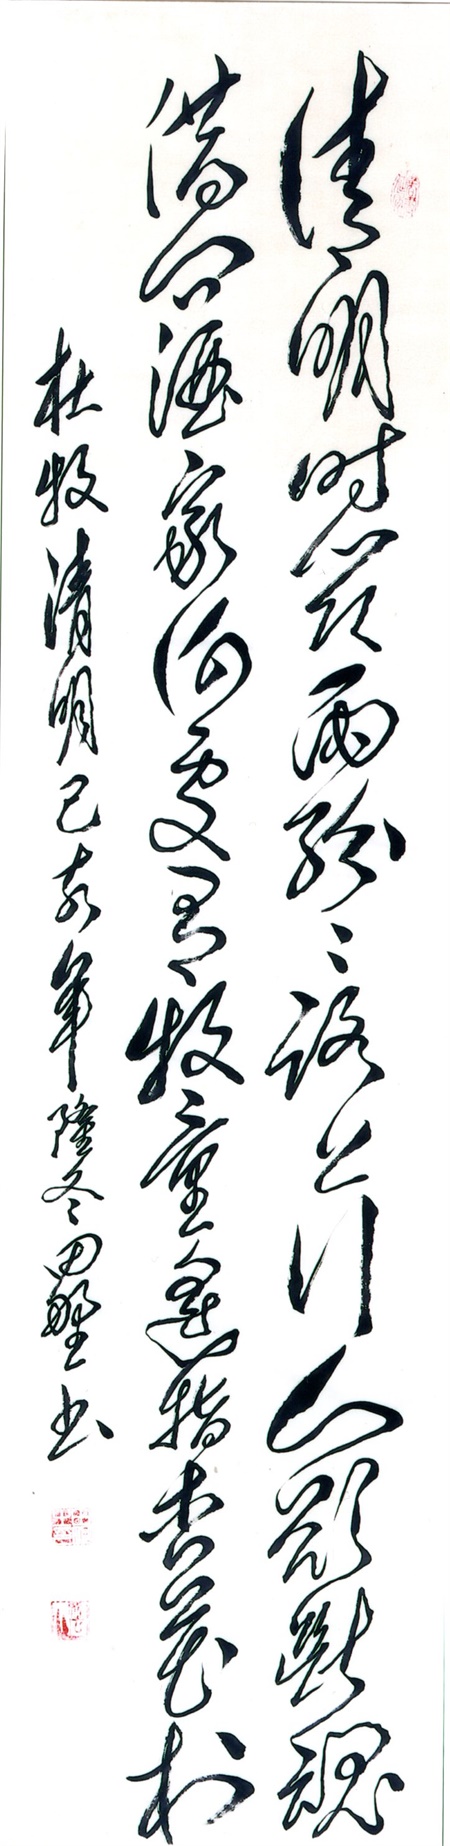 清明时节雨纷〻路上行人欲断魂
借问酒家何处有牧童遥指杏花村
杜牧清明己亥年隆冬田野书